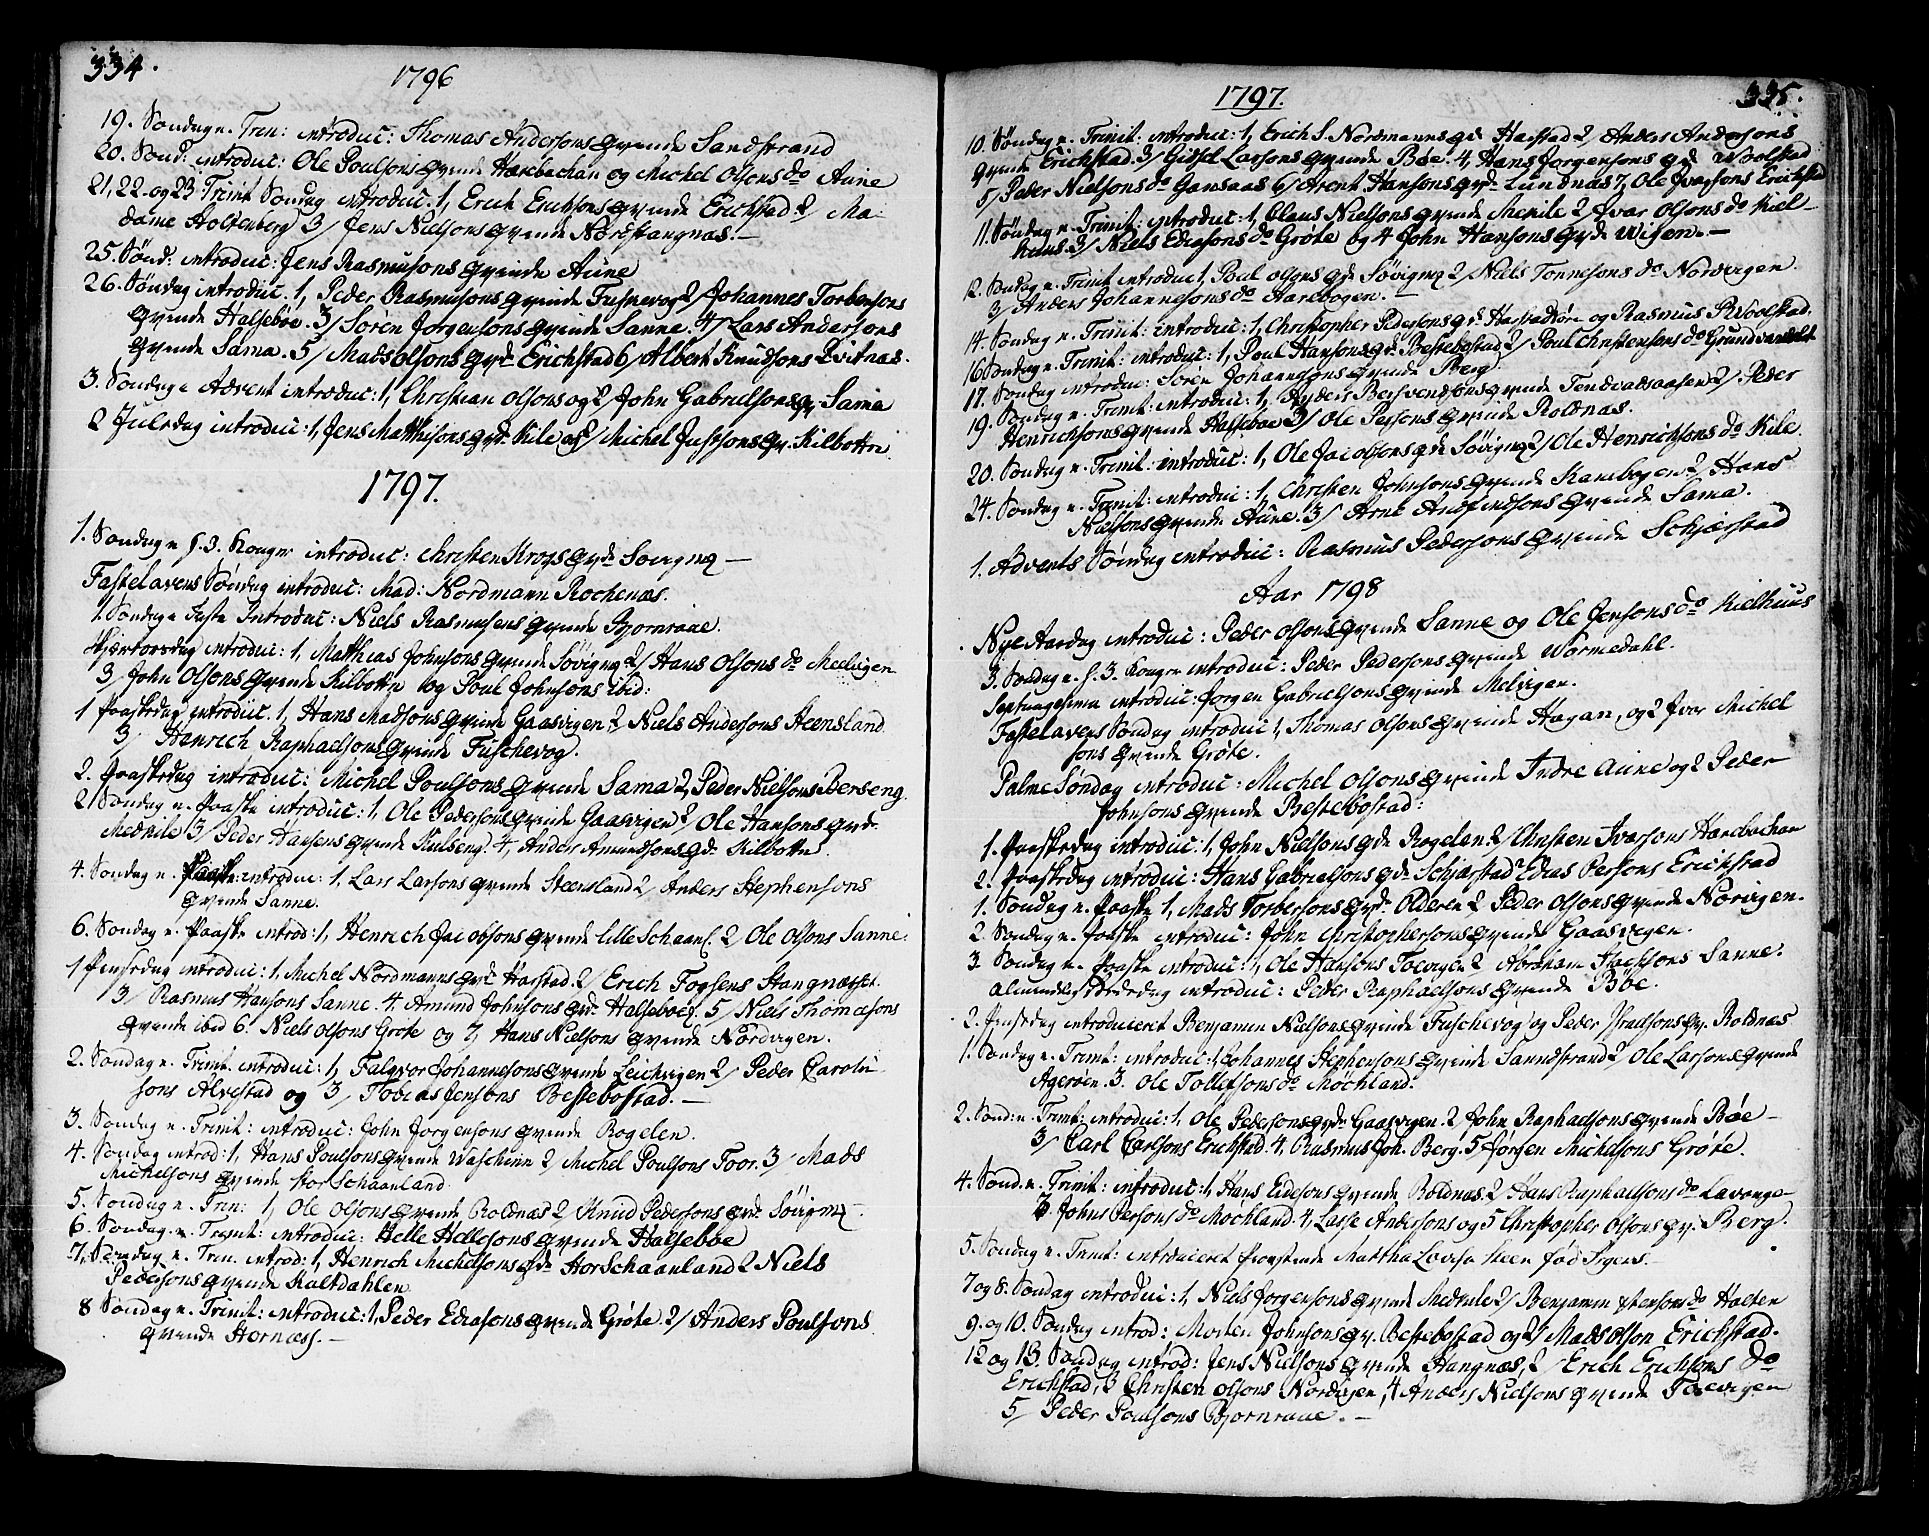 334.
1796
19. Søndag n. Trin: introduc: Thomas Andersons qvinde Sandstrand
20. Sønd: introduc: Ole Poulsons qvinde Harebachan og Michel Olsons do Aune
21, 22. og 23 Trinit Søndag introduc: 1, Erich Erichsons qvinde Erichstad 2/ Ma-
dame Holtenberg 3/ Jens Nielsons qvinde Nordstangnas.
25. Sønd: introduc: Jens Rasmusons qvinde Aune
26. Søndag introduc: 1, Peder Rasmusons qvinde Fuskevog 2/ Johannes Torbersons
qvinde Halsebøe. 3/ Søren Jorgensons qvinde Sanne. 4/ Lars Andersons
qvinde Sama. 5/ Mads olsons qvd. Erichstad 6/ Albert Knudsons Qvitnas.
3. Søndag n Advent introduc: 1, Christian olsons og 2/ John Gabrielsons qv. Sama
2 Juledag introduc: 1, Jens Matthisons qvd. Kile og 2/ Michel Justsons qv. Kilbottn
1797.
1. Søndag n H. 3. Konger introduc: Christen Kroys qvd. Sövigen
Fastelavens Søndag introduc: Mad: Nordmann Rochenæs.
1. Søndag n Faste Introduc: Niels Rasmusens qvinde Bjornraae.
Skjærtorsdag introduc: 1, Matthias Johnsons qvinde Søvigen 2/ Hans Olsons do Melvigen
3/ John Olsons qvinde Kilbottn og Poul Johnsons ibid:
1 Paaskedag introduc. 1, Hans Madsons qvinde Gaasvigen 2, Niels Andersons Steensland
3/ Henrich Raphaelsons qvinde Fuschevog.
2. Paaskedag introduc: Michel Poulsons qvinde Sama 2, Peder Nielsons Berseng.
2 Søndag n. Paaske introduc: 1, Ole Pedersons qvinde Gaasvigen 2/ Ole Hansons qvd.
Medkile 3/ Peder Hansens qvinde Kulseng. 4, Anders Amundsons qd. Kilbottn
4. Søndag n. Paaske introduc: 1, Lars Larsons qvinde Steensland 2/ Anders Stephensons
qvinde Sanne.
6. Søndag n. Paaske introd: 1, Henrich Jacobsons qvinde lille Schaanl. 2/ Ole Olsons Sanne.
1 Pinsedag introduc: 1, Michel Nordmanns qvd. Harstad. 2/ Erich Fogsens Stangnæset.
3/ Rasmus Hansons Sanne. 4. Amund Johnsons qvd. Halseboe. 5/ Niels Thomasons
qvinde ibid 6. Niels olsons Grøte og 7, Hans Nielsons qvinde Nordvigen.
2. Søndag n. Trinit. introduc: 1, Falqvor Johannesons qvinde Leichvigen 2/ Peder Carolin
sons Alvestad og 3/ Tobias Jensons Bestebostad.
3. Søndag n. Trinit: introduc: John Jorgensons qvinde Rogelen.
4. Søndag introd: 1, Hans Poulsons qvinde Waschinn 2/ Michel Poulsons Foor. 3/ Mads
Michelsons qvinde stor Schaanland.
5. Søndag n. Trin: 1, Ole Olsons qvinde Roldnas 2/ Knud Pedersons qvd. Søvigen
6. Søndag. n. Trinit: introduc: Helle Hellesons qvinde Halseboe
7, Søndag n. Trin. introd: 1, Henrich Michelsons qvd. Stor Schaanland 2 Niels
Pedersons qvinde Kaltdahlen
8 Søndag n. Trinit: introduc: 1, Peder Ediasons qvinde Grøte. 2/ Anders Poulsons
qvinde Stornæss.
335.
1797.
10. Søndag n. Trinit. introduc: 1, Erich S. Nordmanns qvd. Harstad 2/ Anders Andersons
qvinde Erichstad. 3/ Gidsel Larsons qvinde Bøe. 4, Hans Jorgensons qd. Woolstad
5/ Peder Nielsons do Gansaas 6/ Arent Hansons qvd. Lundnas 7, Ole Ivarsons Erichstad
11. Søndag n. Trinit: introduc: 1, Claus Nielsons qvinde Mekile 2/ Ivar Olsons do Kiel-
huus 3/ Niels Ediasons do Grøte og 4 John Hansons qvde Wigen.
12. Søndag n. Trinit introduc 1, Poul olsons qde Søvigen 2/ Niels Tonnesons do Nordvigen.
3/ Anders Johannesons do Harebogen.
14. Søndag n. Trinit: introduc: 1, Christopher Pedersons qvd. Harstadtøre og Rasmus P. Woolstad.
16 Søndag n. Trinit: introduc: 1, Poul Hansons qd. Bestebostad 2/ Poul Christensons do Grundvandet
17. Søndag introduc: Søren Johannesons qvinde Berg.
19. Søndag n. Trinit: introduc: 1, Anders Bersvensons qvinde Tendvadsaasen 2/ Peder
Henrichsons qvinde Halsebøe 3/ Ole Persons qvinde Roldnas.
20. Søndag n. Trinit: introduc: 1, Ole Jacobsons qde Søvigen 2/ Ole Henrichsons do Kile.
24. Søndag n. Trinit: introduc: 1, Christen Johnsons qvinde Kanebogen 2/ Hans
Nielsons qvinde Aune. 3/ Arne Andfindsons qvinde Sama.
1. Advents Søndag introduc: Rasmus Pedersons qvinde Schjærstad
Aar 1798
Nye Aarsdag introduc: Peder olsons qvinde Sanne og Ole Jensons do Kielhuus
3. Søndag n. H. 3. Konger introduc: Peder Pedersons qvinde Wormedahl.
Septuagesima introduc: Jorgen Gabrielsons qvinde Melvigen.
Fastelavens Søndag introduc: 1, Thomas olsons qvinde Hagan, og 2 Ivar Michel
sons qvinde Grøte.
Palme Søndag introduc: Michel olsons qvinde Indre Aune og 2 Peder
Johnsons qvinde Bestebostad:
1. Paaskedag introduc: 1, John Nielsons qde Rogelen 2/ Christen Ivarsons Harebachan
2. Paaskedag introduc: Hans Gabrielsons qde Schjærstad 2 Edias Persons Erichstad
1. Søndag n. Paaske 1, Mads Torbersons qvd. Olderen 2 Peder olsons qvinde Norvigen.
2. Søndag n. Paaske introduc: John Christophersons qvinde Gaasvigen.
3. Søndag n. Paaske introduc: 1, Ole Hansons Toevigen 2/ Abraham Isachsons Sanne.
Almindelig Bededag introduc: Peder Raphaelsons qvinde Bøe.
2. Pinsedag introduceret Benjamin Nielsons qvinde Fuschevog og Peder Israelsons qv. Roldnæs
1. Søndag n. Trinit: introduc: 1, Johannes Stephensons qvinde Sanndstrand 2/ Ole Larsons qvinde
Agerøen. 3. Ole Tollefsons do Møchland.
2. Sønd: n. Trinit: introduc: 1, Ole Pedersons qvd. Gaasvigen. 2 John Raphaelsons qvinde Bøe
3/ Carl Carlsons Erichstad. 4, Rasmus Joh. Berg. 5 Jørgen Michelsons Grøte.
4. Sønd. n. Trinit: introduc: 1, Hans Edesons qvinde Roldnas. 2 Hans Raphaelsons do Lavange
3 Johns Persons do Mochland. 4, Lasse Andersons og 5 Christopher Olsons qv. Berg.
5. Søndag n. Trinit: introduceret Proustinde Martha Lovisa Steen fød Irgens.
7 og 8. Søndag introduc: 1, Niels Jorgensons qvinde Medkile 2/ Benjamin Stensons do Halten
9. og 10. Søndag introd: Morten Johnsons qv. Bestebostad og 2/ Mads olson Erichstad.
12 og 13. Søndag introd: Jens Nielsons qvinde Stangnæs, 2/ Erich Erichsons do
Erichstad, 3 Christen olsons Nordvigen, 4 Anders Nielsons qvinde Toevigen
5/ Peder Poulsons Bjornraae.